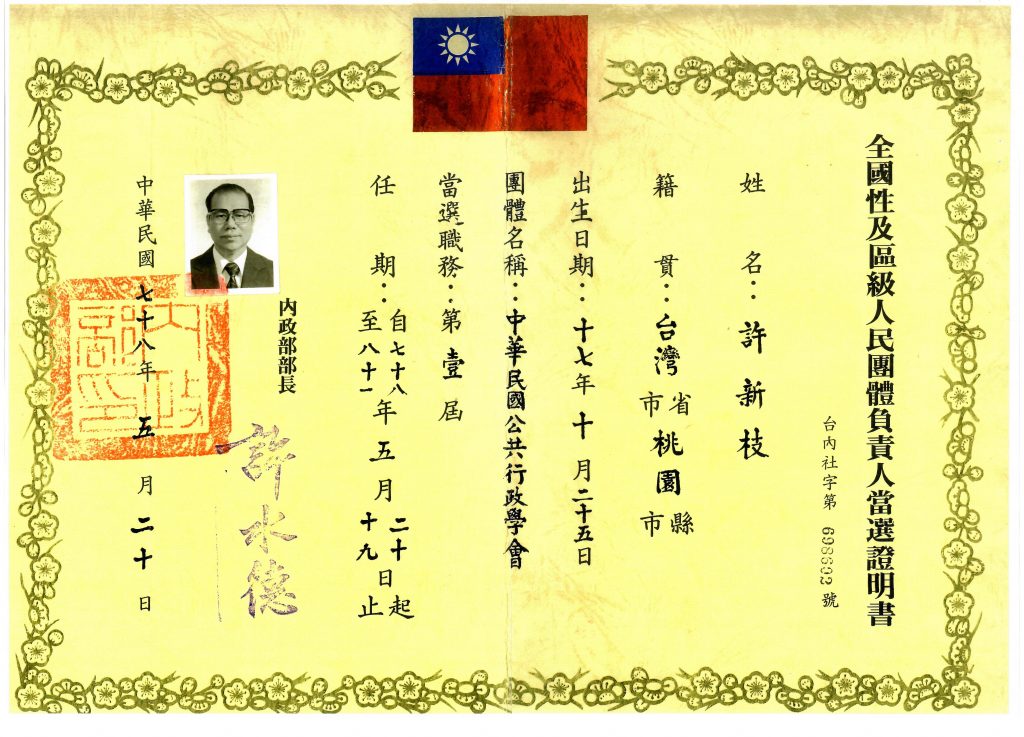 全國性及區級人民團體負責人當選證明書
台內社字第 698692 號
姓名：許新枝
籍貫：台灣省市桃園縣市
出生日期：十七年十月二十五日
團體名稱：中華民國公共行政學會
當選職務：第壹屆
任期：自七十八至八十一年五月二十十九日起止
內政部部長
許水德
中華民國七十八年五月二十日
內政部印